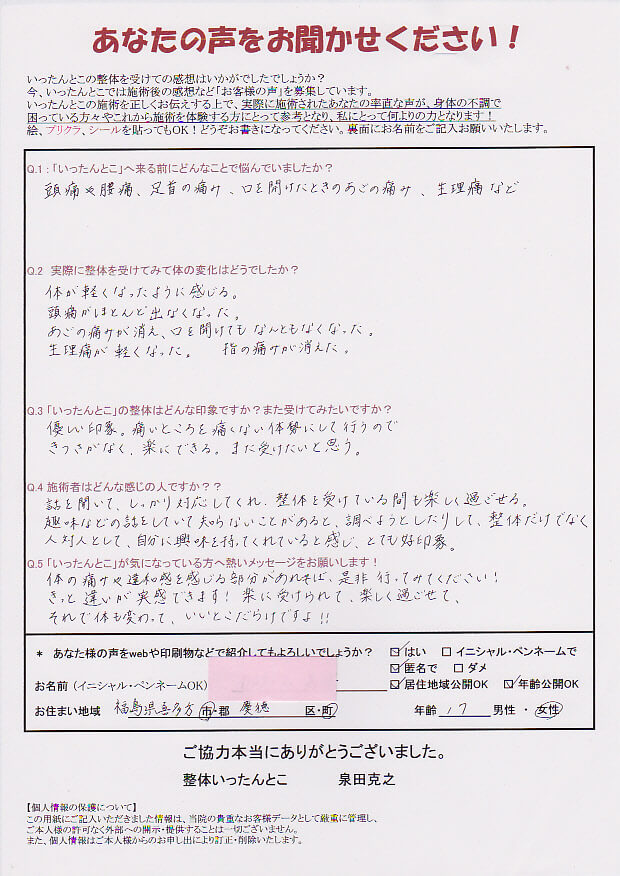 あなたの声をお聞かせください！
いったんとこの整体を受けての感想はいかがでしたでしょうか？
今、いったんとこでは施術後の感想など「お客様の声」を募集しています。
いったんとこの施術を正しくお伝えする上で、実際に施術されたあなたの率直な声が、身体の不調で
困っている方々やこれから施術を体験する方にとって参考となり、私にとって何よりの力となります！
絵、プリクラ、シールを貼ってもOK！どうぞお書きになってください。裏面にお名前をご記入お願いいたします。
Q.1：「いったんとこ」へ来る前にどんなことで悩んでいましたか？
頭痛や腰痛、足首の痛み、口を開けたときのあごの痛み、生理痛など
Q.2 実際に整体を受けてみて体の変化はどうでしたか？
体が軽くなったように感じる。
頭痛がほとんど出なくなった。
あごの痛みが消え、口を開けてもなんともなくなった。
生理痛が軽くなった。 指の痛みが消えた。
Q.3「いったんとこ」の整体はどんな印象ですか？また受けてみたいですか？
優しい印象。痛いところを痛くない体勢にして行うので
きつさがなく、楽にできる。また受けたいと思う。
Q.4 施術者はどんな感じの人ですか？？
話を聞いて、しっかり対応してくれ、整体を受けている間も楽しく過ごせる。
趣味などの話をしていて知らないことがあると、調べようとしたりして、整体だけでなく
人対人として、自分に興味を持ってくれていると感じ、とても好印象。
Q.5「いったんとこ」が気になっている方へ熱いメッセージをお願いします！
体の痛みや違和感を感じる部分があれば、是非行ってみてください！
きっと違いが実感できます！楽に受けられて、楽しく過ごせて、
それで体も変わって、いいとこだらけですよ！！
* あなた様の声をwebや印刷物などで紹介してもよろしいでしょうか？ ☑はい □イニシャル・ペンネームで
☑匿名で □ダメ
お名前（イニシャル・ペンネームOK） ☑居住地域公開OK ☑年齢公開OK
お住まい地域 福島県喜多方 市・郡 慶徳 区・町 年齢 17 男性・女性
ご協力本当にありがとうございました。
整体いったんとこ 泉田克之
【個人情報の保護について】
この用紙にご記入いただきました情報は、当院の貴重なお客様データとして厳重に管理し、
ご本人様の許可なく外部への開示・提供することは一切ございません。
また、個人情報はご本人様からのお申し出により訂正・削除いたします。